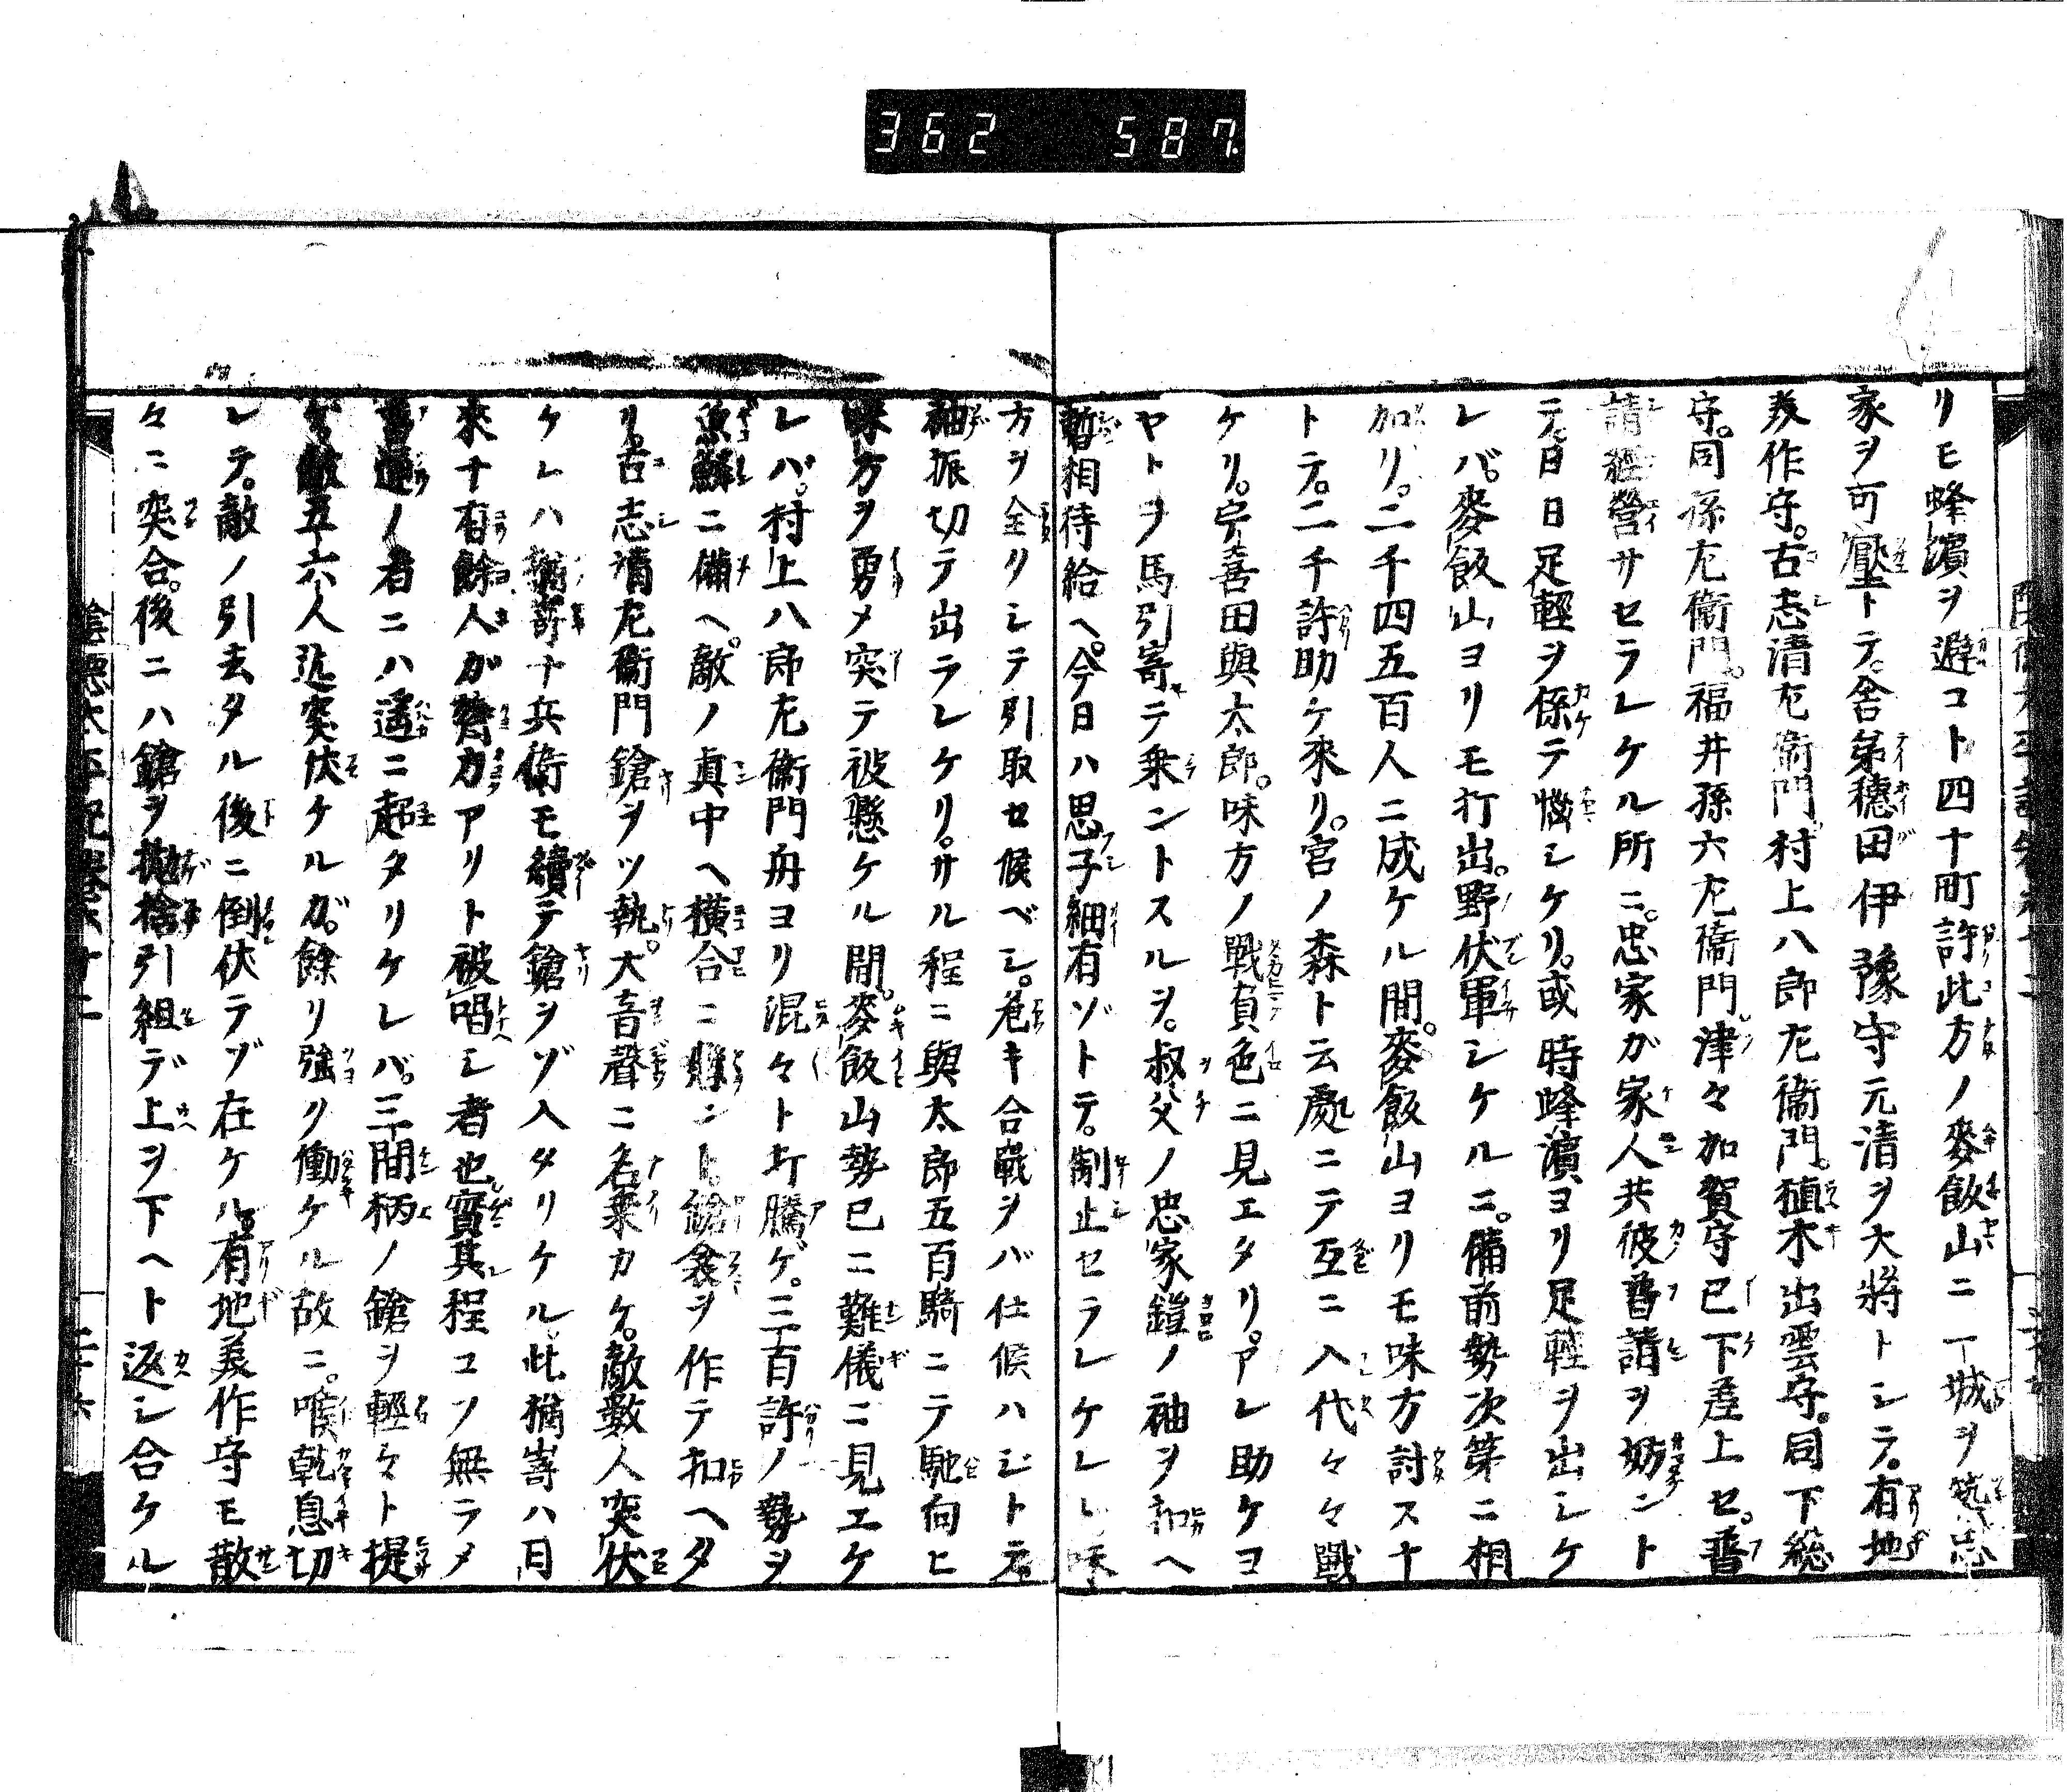 362 587.
リモ蜂濱ヲ避コト四十町許此方ノ麥飯山ニ一城ヲ築忠
家ヲ可壓トテ。舍弟穗田伊豫守元清ヲ大將トシテ。有地
美作守。古志清左衞門村上八郎左衞門。植木出雲守。同下総
守。同孫左衞門。福井孫六左衞門津々加賀守已下差上セ。普
請經營サセラレケル所ニ。忠家ガ家人共彼普請ヲ妨ント
テ。日日足輕ヲ係テ惱シケリ。或時蜂濱ヨリ足輕ヲ出シケ
レバ。麥飯山ヨリモ打出。野伏軍シケルニ。備前勢次第ニ相
加リ。二千四五百人ニ成ケル間。麥飯山ヨリモ味方討スナ
トテ。二千許助ケ來リ。宮ノ森ト云處ニテ互ニ入代々々戰
ケリ。宇喜田與太郎。味方ノ戰負色ニ見エタリ。アレ助ケヨ
ヤトヲ馬引寄テ乗ントスルヲ。叔父ノ忠家鎧ノ袖ヲ扣ヘ
暫相待給ヘ。今日ハ思子細有ゾトテ。制止セラレケレレ味
方ヲ全リシテ引取セ候ベシ。危キ合戰ヲバ仕候ハジトテ
袖振切テ出ラレケリ。サル程ニ與太郎五百騎ニテ馳向ヒ
味方ヲ勇メ突テ被懸ケル間。麥飯山勢已ニ難儀ニ見エケ
レバ。村上八郎左衞門舟ヨリ混々ト打騰ゲ。三百許ノ勢ヲ
魚鱗ニ備ヘ。敵ノ眞中ヘ横合ニ懸ント。鎗衾ヲ作テ扣ヘタ
リ。古志清左衞門鎗ヲツ執。大音聲ニ名乗カケ。敵數人突伏
ケレハ楢嵜十兵衞モ續テ鎗ヲゾ入タリケル。此楢嵜ハ日
來十有餘人ガ膂力アリト被唱シ者也實其程コソ無ラメ
普通ノ者ニハ遥ニ超タリケレバ。三間柄ノ鎗ヲ輕々ト提
ゲ。敵五六人迄突伏ケルガ。餘リ強リ働ケル故ニ。喉乾息切
レテ。敵ノ引去タル後ニ倒伏テゾ在ケル有地美作守モ散
々ニ突合。後ニハ鎗ヲ抛捨引組デ上ヲ下ヘト返シ合ケル
陰德太平記卷六十二